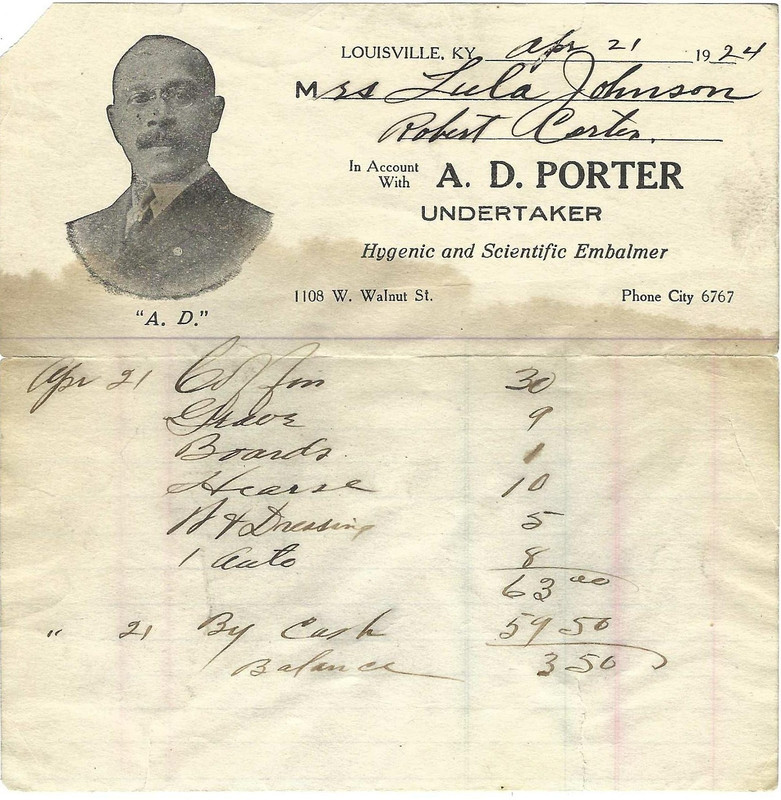 LOUISVILLE, KY. Apr 21 1924
Mrs Lula Johnson
Robert Carter.
In Account With A. D. PORTER
UNDERTAKER
Hygenic and Scientific Embalmer
1108 W. Walnut St. Phone City 6767
"A. D."
Apr 21 Coffin 30
Grave 9
Boards 1
Hearse 10
W & Dressing 5
1 Auto 8
63 00
" 21 By Cash 59 50
Balance 3 50